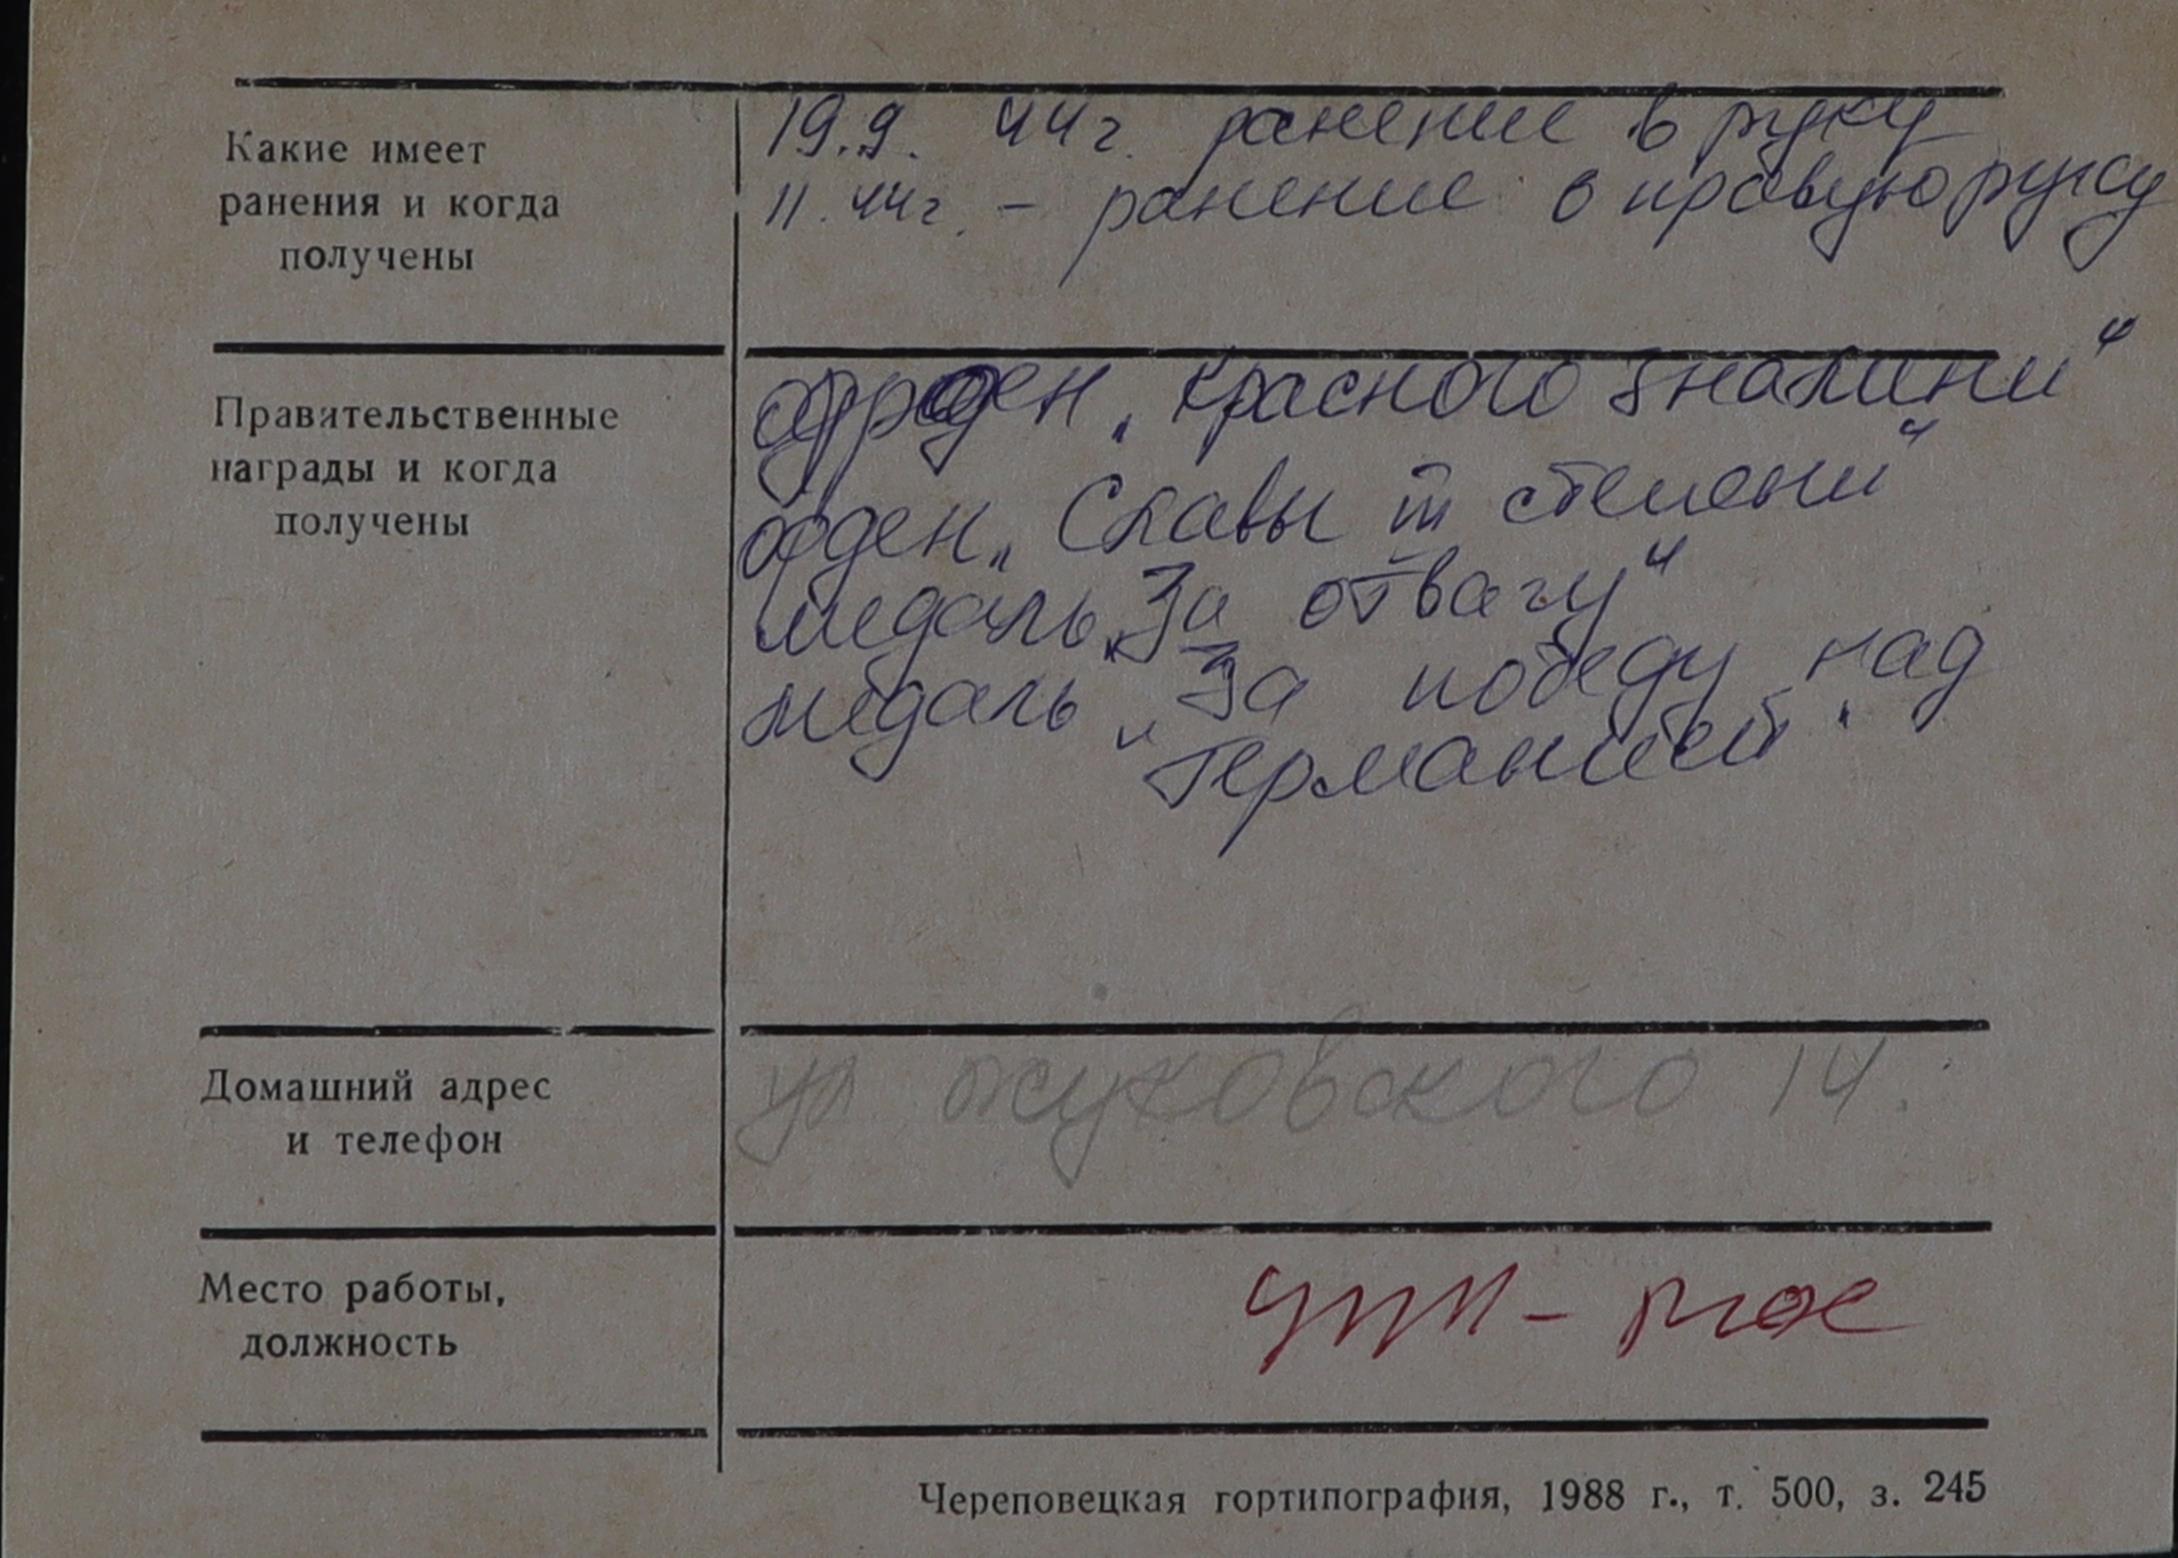 Какие имеет
ранения и когда
получены
19.9. 44 г. ранение в руку
11. 44 г. - ранение в правую руку
Правительственные
награды и когда
получены
орден „Красного Знамини“
орден „Славы III степени“
медаль „За отвагу“
медаль „За победу над
Германией“
Домашний адрес
и телефон
ул Жуковского 14.
Место работы,
должность
Череповецкая гортипография, 1988 г., т. 500, з. 245